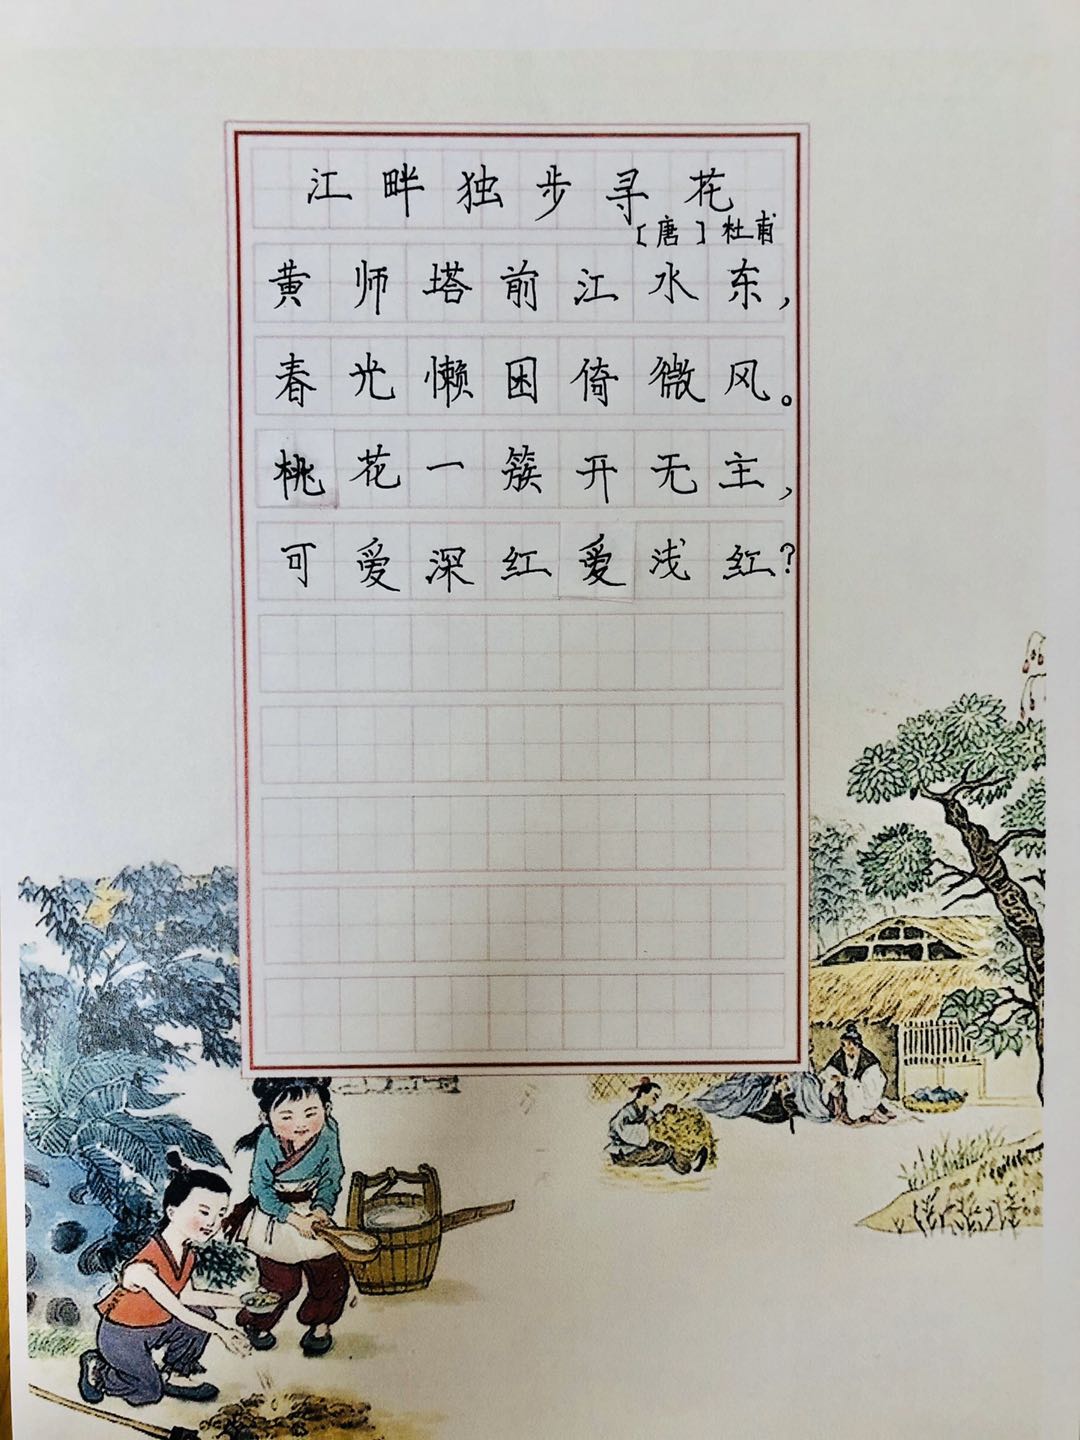 江畔独步寻花
[唐]杜甫
黄师塔前江水东,
春光懒困倚微风。
桃花一簇开无主,
可爱深红爱浅红?